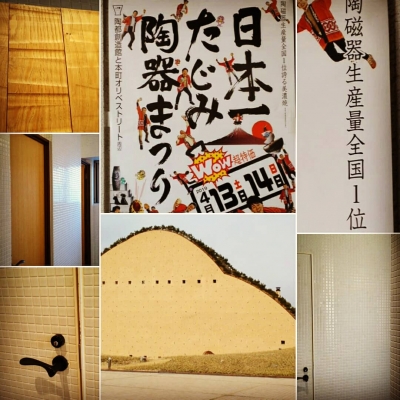 陶磁器生産量全国1位誇る美濃焼
日本一
たじみ
陶器まつり
陶都創造館と本町オリベストリート周辺
WOW
超特価
4月13土14日
陶磁器生産量全国1位